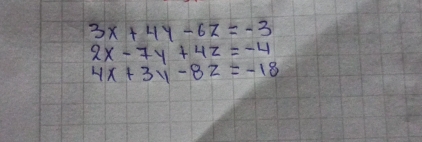 3x + 4y - 6z = -3
2x - 7y + 4z = -4
4x + 3y - 8z = -18